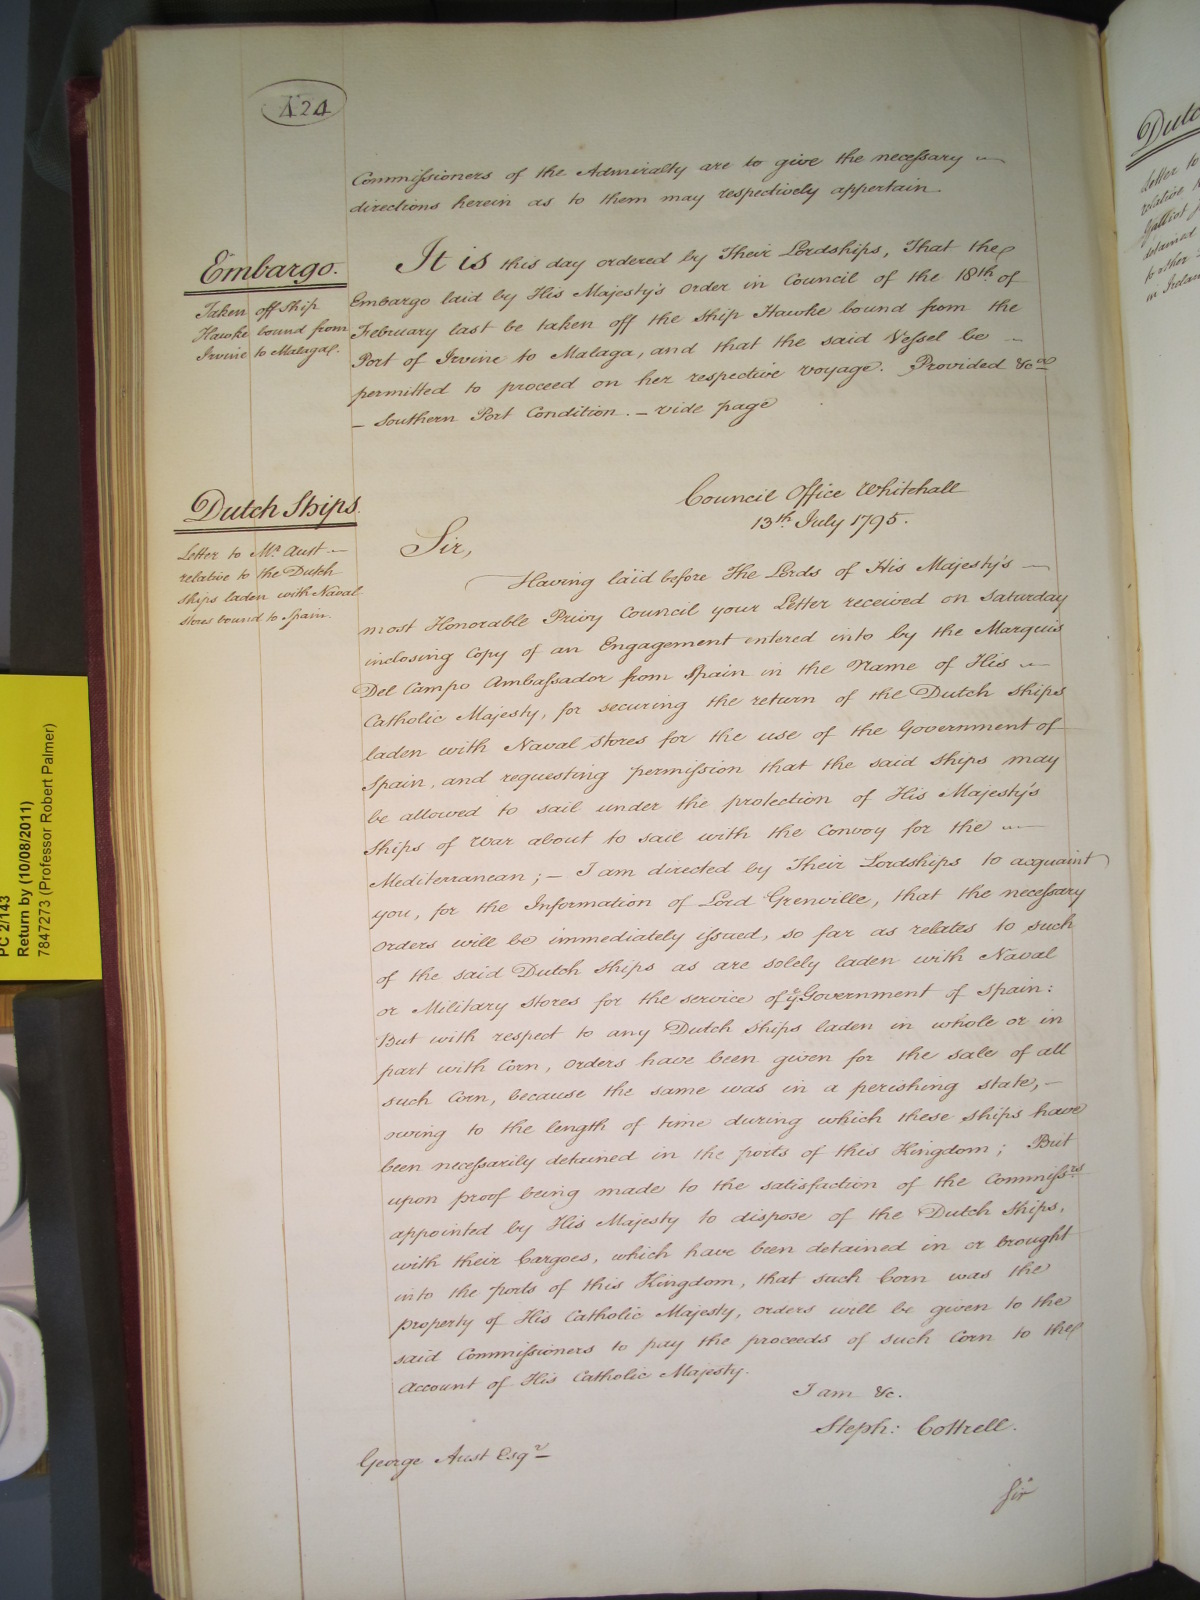 424
Commissioners of the Admiralty are to give the necessary
directions herein as to them may respectively appertain.
Embargo.
Taken off Ship
Hawke bound from
Irvine to Malaga.
It is this day ordered by Their Lordships, That the
Embargo laid by His Majesty's Order in Council of the 18th of
February last be taken off the Ship Hawke bound from the
Port of Irvine to Malaga, and that the said Vessel be
permitted to proceed on her respective voyage. Provided &ca
– Southern Port Condition. – vide page
Dutch Ships.
Letter to Mr. Aust –
relative to the Dutch
Ships laden with Naval
Stores bound to Spain.
Council Office Whitehall
13th July 1795.
Sir,
Having laid before The Lords of His Majesty's –
most Honorable Privy Council your Letter received on Saturday
inclosing Copy of an Engagement entered into by the Marquis
Del Campo Ambassador from Spain in the Name of His
Catholic Majesty, for securing the return of the Dutch Ships
laden with Naval Stores for the use of the Government of
Spain, and requesting permission that the said Ships may
be allowed to sail under the protection of His Majesty's
Ships of War about to sail with the Convoy for the
Mediterranean; – I am directed by Their Lordships to acquaint
you, for the Information of Lord Grenville, that the necessary
Orders will be immediately issued, so far as relates to such
of the said Dutch Ships as are solely laden with Naval
or Military Stores for the service of ye Government of Spain:
But with respect to any Dutch Ships laden in whole or in
part with Corn, Orders have been given for the sale of all
such Corn, because the same was in a perishing state, –
owing to the length of time during which these Ships have
been necessarily detained in the ports of this Kingdom; But
upon proof being made to the satisfaction of the Commissrs
appointed by His Majesty to dispose of the Dutch Ships,
with their Cargoes, which have been detained in or brought
into the Ports of this Kingdom, that such Corn was the
property of His Catholic Majesty, orders will be given to the
said Commissioners to pay the proceeds of such Corn to the
Account of His Catholic Majesty.
I am &c.
Steph: Cottrell.
George Aust Esqr
Sir
PC 2/143
Return by (10/08/2011)
7847273 (Professor Robert Palmer)
Letter to
relative
Galliot
detained
in